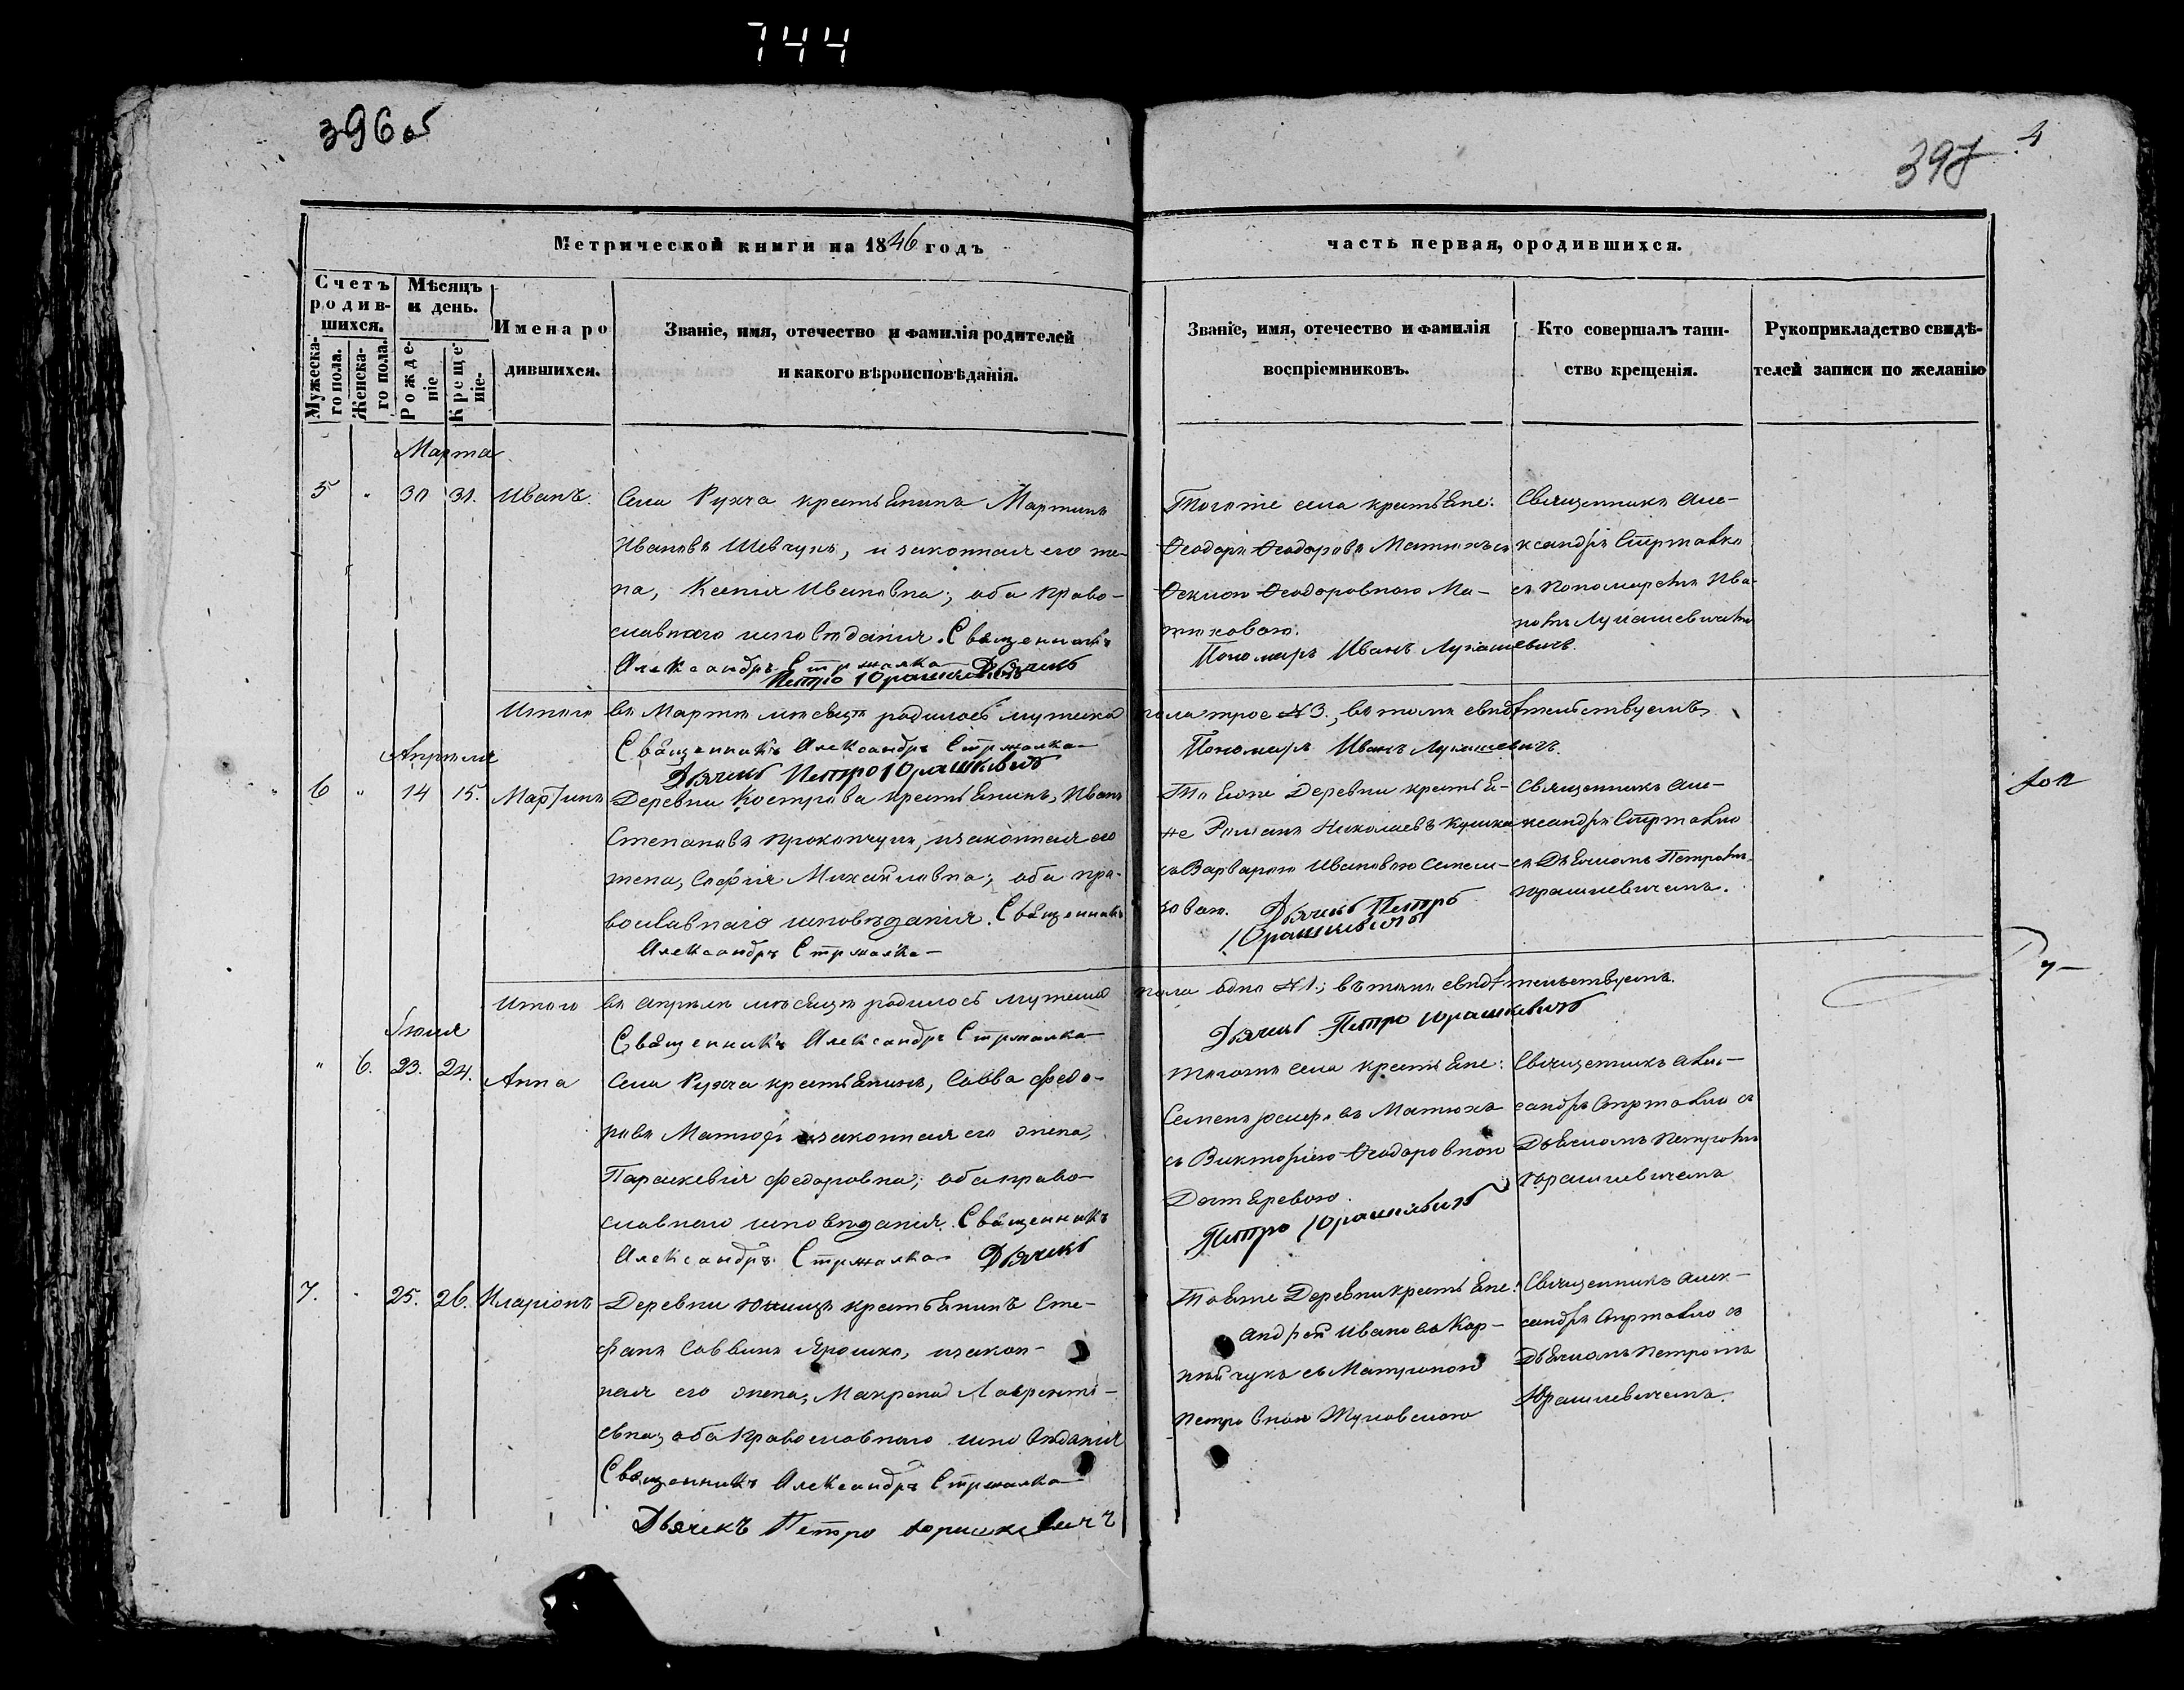 744
396 об
397
4
Метрической книги на 1846 годъ
часть первая, о родившихся.
Счетъ родившихся.
Мужеска-го пола.
Женска-го пола.
Мѣсяцъ и день.
Рожденіе
Крещеніе.
Имена ро
дившихся.
Званіе, имя, отечество и фамилія родителей
и какого вѣроисповѣданія.
Званіе, имя, отечество и фамилія
воспріемниковъ.
Кто совершалъ таин-
ство крещенія.
Рукоприкладство свидѣ-
телей записи по желанію
Марта
5 " 30 31. Иванъ.
Села Рухча крестьянинъ Мартинъ
Ивановъ Шевчукъ, и законная его же-
на, Ксенія Ивановна; оба право-
славнаго исповѣданія. Священникъ
Александръ Стржалка Дьячекъ
Петро Юрашкевичъ
Тогоже села крестьяне:
Ѳеодоръ Ѳеодоровъ Матюхъ съ
Ѳеодоровною Ма-
тюховою.
Пономарь Иванъ Лукашевичъ.
Священникъ Але-
ксандръ Стржалко
съ Пономаремъ Ива-
номъ Лукашевичемъ
Итого въ Мартѣ мѣсяцѣ родилось мужеска пола трое № 3., въ томъ свидѣтельствуемъ,
Священникъ Александръ Стржалка
Пономарь Иванъ Лукашевичъ.
Дьячекъ Петро Юрашкевичъ
Апрѣля
6 " 14 15. Мартинъ
Деревни Кострова крестьянинъ, Иванъ
Степановъ Прокопчукъ, и законная его
жена, Софія Михайловна; оба пра-
вославнаго исповѣданія. Священникъ
Александръ Стржалка
Тояже Деревни крестья-
не Романъ Николаевъ
со Варварою Ивановою
Дьячекъ Петръ
Юрашкевичъ
Священникъ Але-
ксандръ Стржалко
съ Дьячкомъ Петромъ
Юрашкевичемъ.
Итого въ Апрѣлѣ мѣсяцѣ родилось мужеска пола одно № 1.; въ томъ свидѣтельствуемъ.
Священникъ Александръ Стржалка
Дьячекъ Петро Юрашкевичъ
Іюля
" 6. 23. 24. Анна
Села Рухча крестьянинъ, Савва Федо-
ровъ Матюхъ и законная его жена,
Параскевія Федоровна; оба право-
славнаго исповѣданія. Священникъ
Александръ Стржалка Дьячекъ
Тогоже села крестьяне:
Семенъ Матюхъ
съ Викторіею Ѳеодоровною
Петро Юрашкевичъ
Священникъ Алек-
сандръ Стржалко съ
Дьячкомъ Петромъ
Юрашкевичемъ
7. " 25. 26. Иларіонъ
Деревни крестьянинъ Сте-
фанъ Саввинъ Ярошко, и закон-
ная его жена, Макрена Лаврентi-
евна; оба православнаго исповѣданія
Священникъ Александръ Стржалка
Дьячекъ Петро Юрашкевичъ
Тояже Деревни крестьяне:
Андрей Ивановъ Кор-
нейчукъ съ Матроною
Петровною Жуковскою
Священникъ Алек-
сандръ Стржалко съ
Дьячкомъ Петромъ
Юрашкевичемъ.